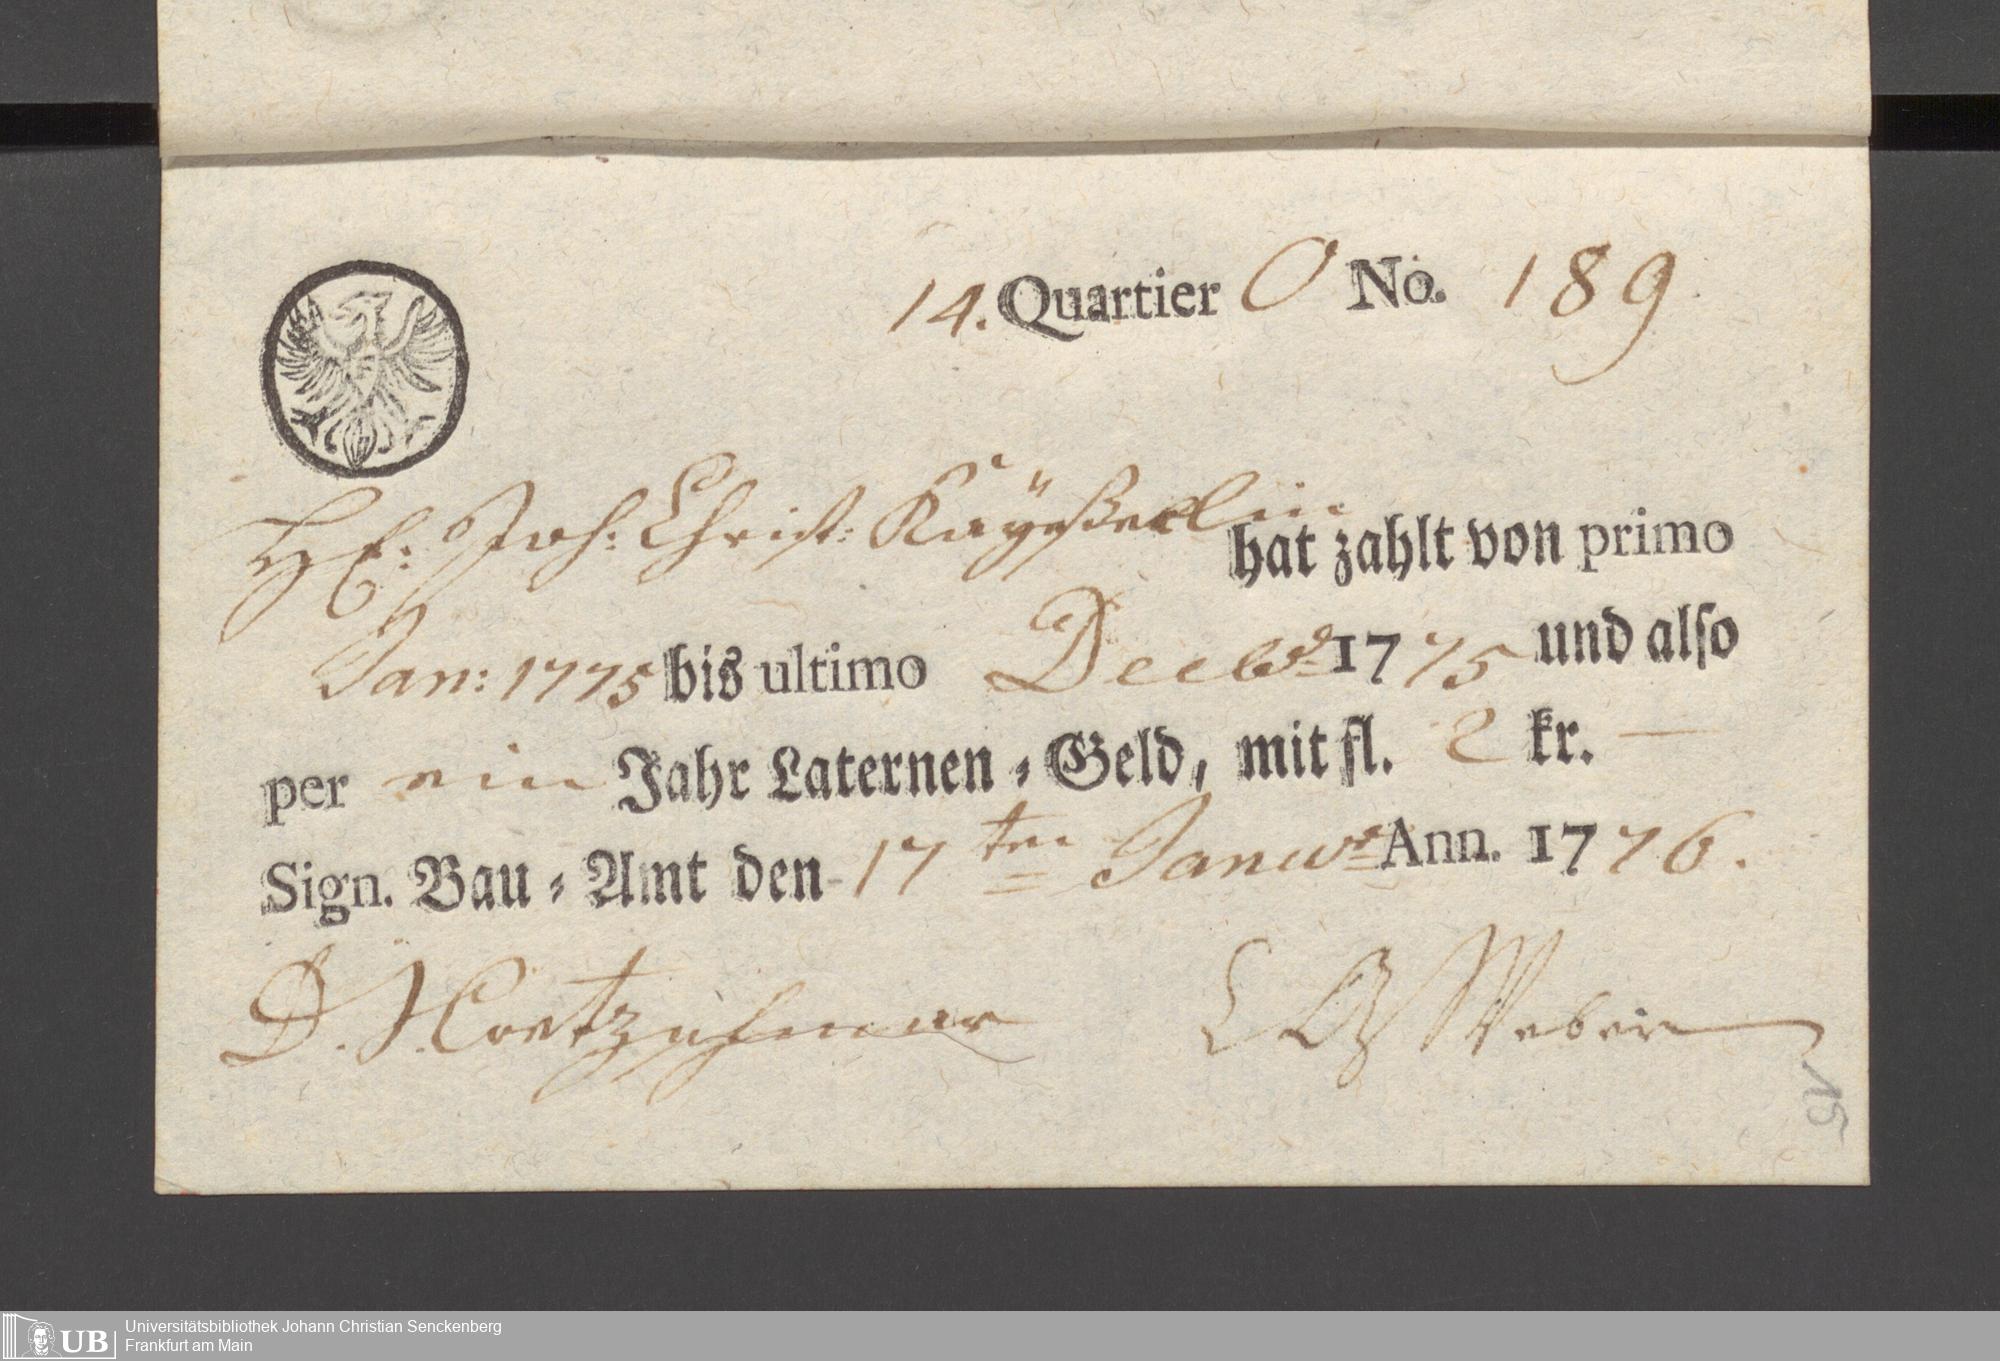 14. Quartier O No. 189
H&: Joh: Christ: Kayßerlin hat zahlt von primo
Jan: 1775 bis ultimo Decbr 1775 und also
per ein Jahr Laternen-Geld, mit fl. 2 kr. —
Sign. Bau-Amt den 17ten Janur Ann. 1776.
D. Weber
UB Universitätsbibliothek Johann Christian Senckenberg
Frankfurt am Main